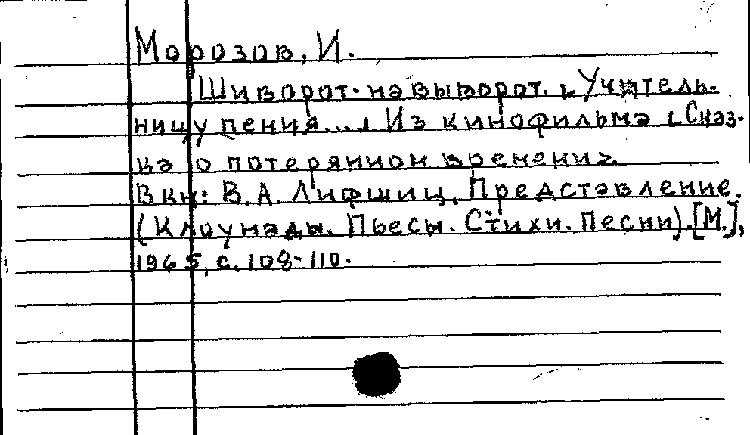 Морозов, И.
Шиворот-навыворот. «Учитель-
ницу пения...» Из кинофильма «Сказ-
ка о потерянном времени»
В кн: В.А. Лифшиц. Представление.
(Клоунады. Пьесы. Стихи. Песни). [М.],
1965, с. 108-110.